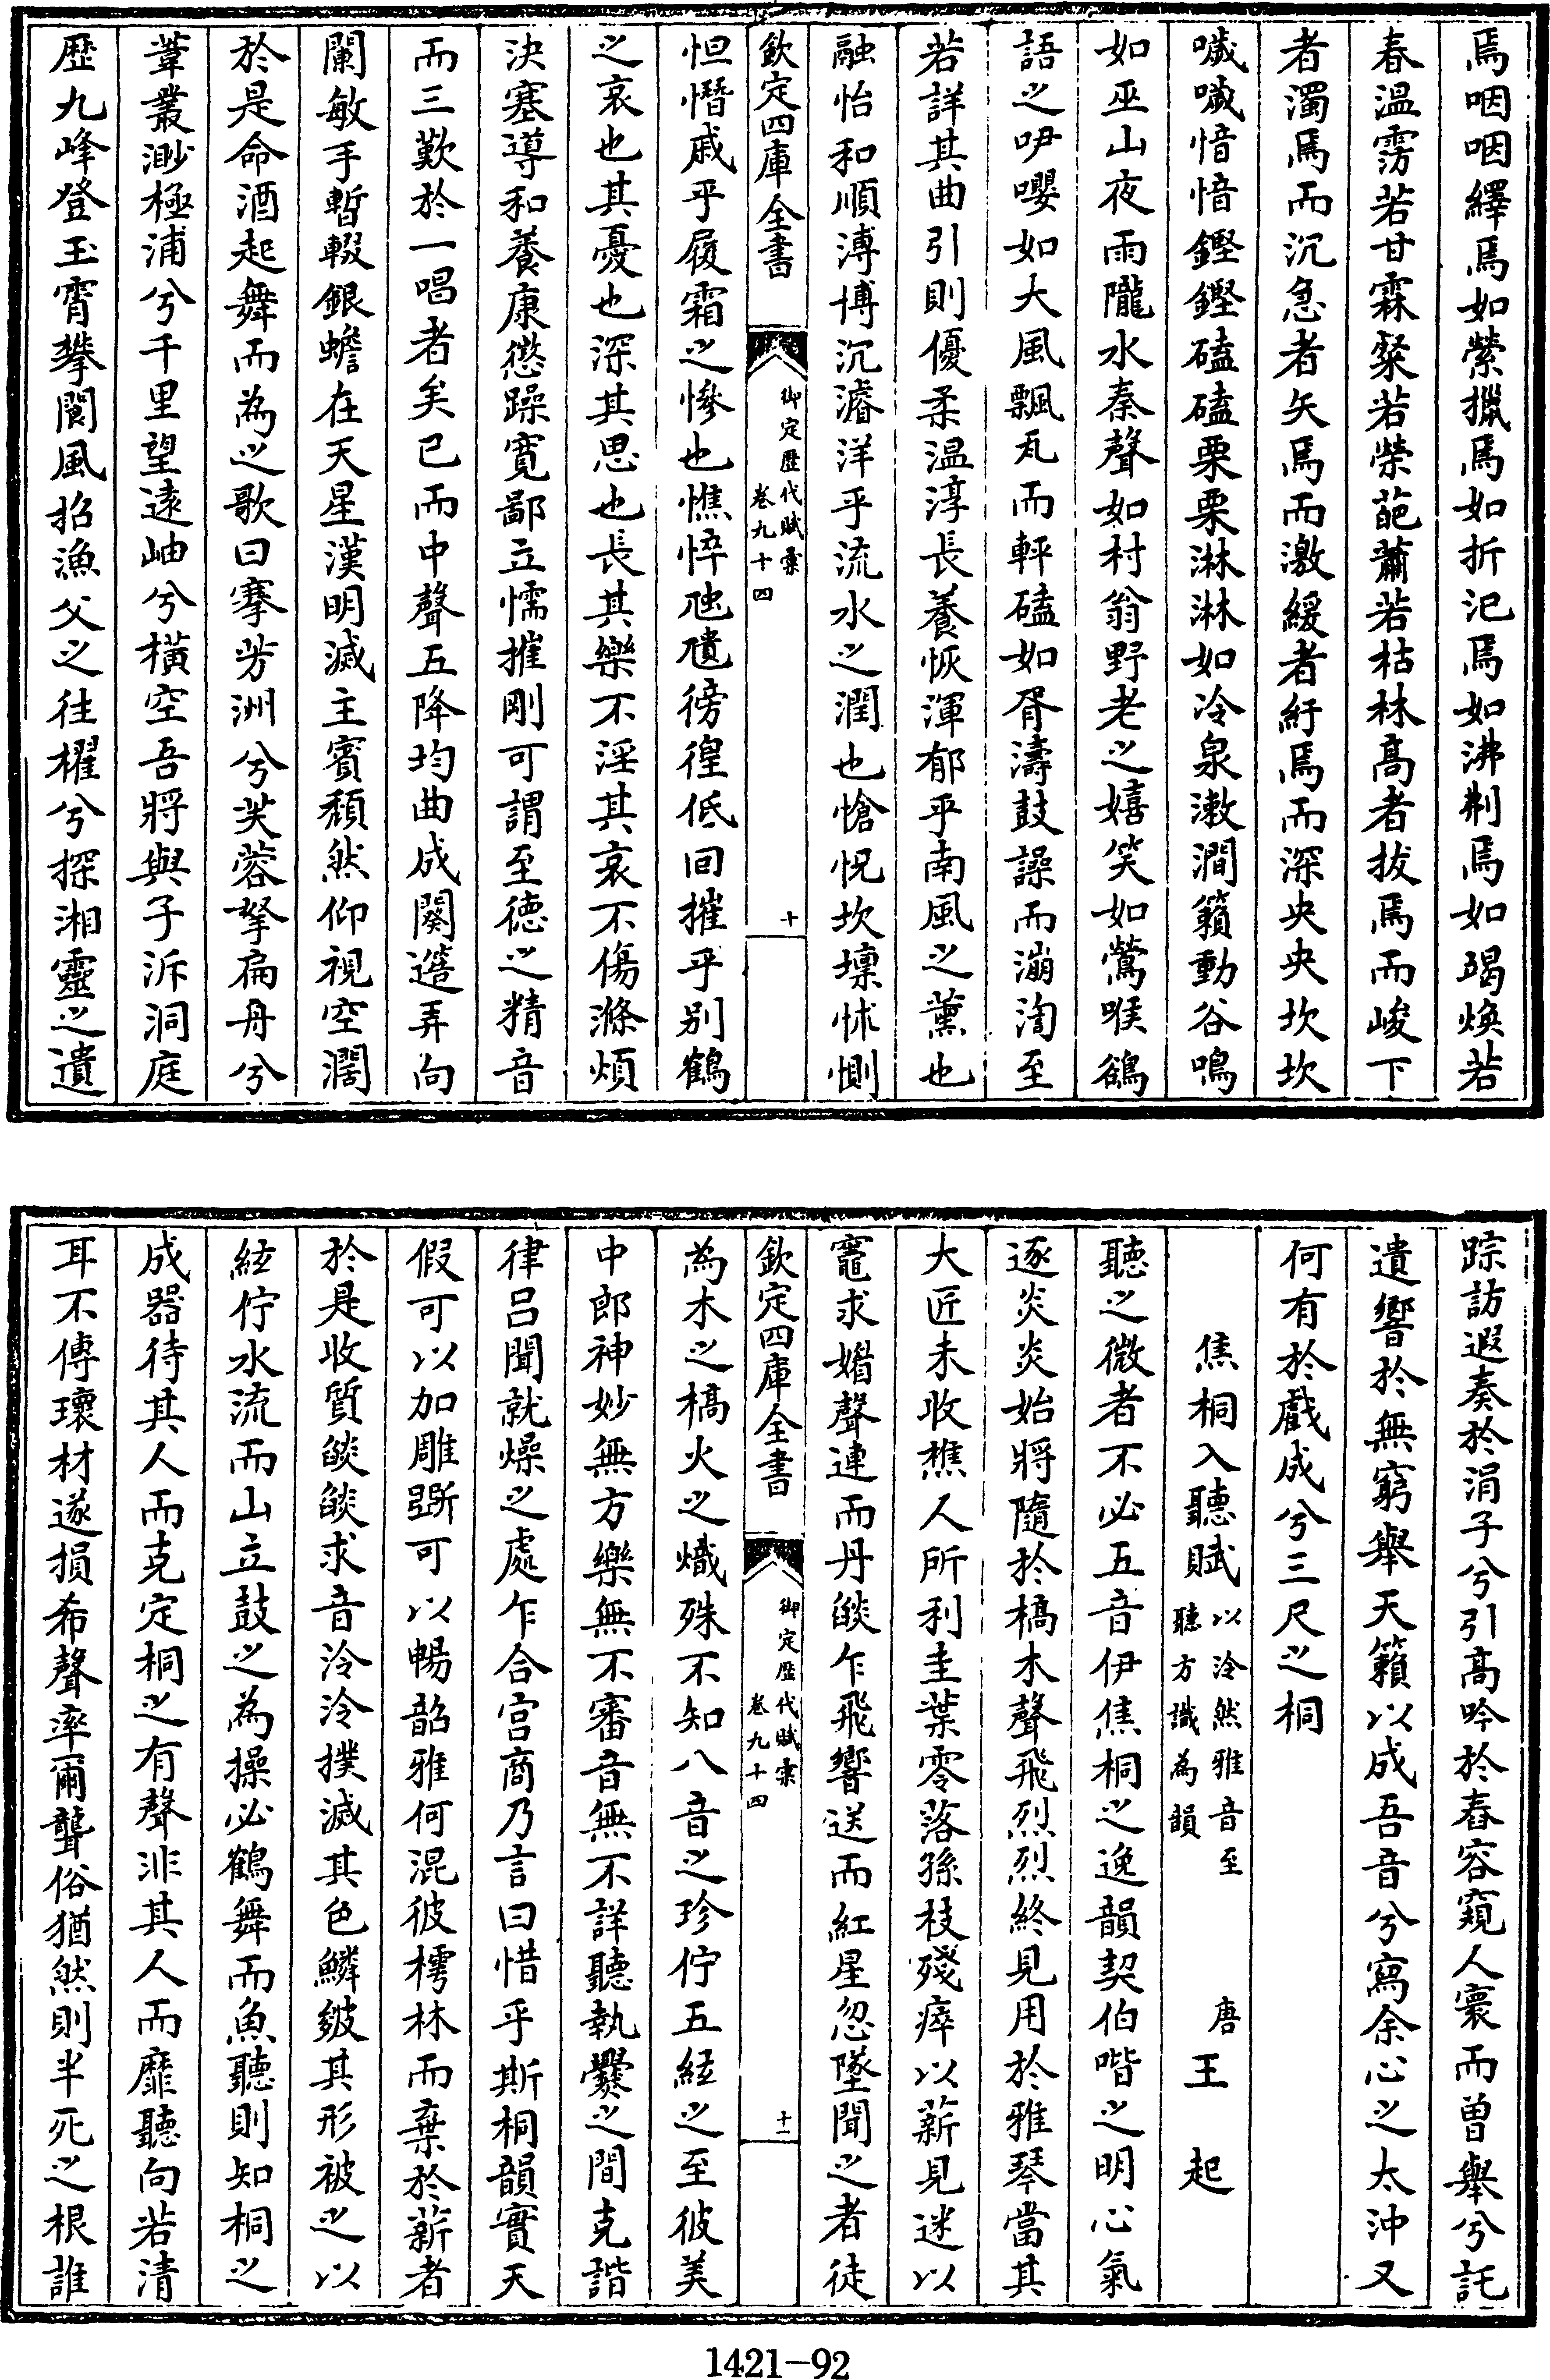 焉咽咽繹焉如縈擸焉如折汜焉如沸判焉如竭煥若
春溫霶若甘霖粲若榮葩蕭若枯林高者拔焉而峻下
者濁焉而沉急者矢焉而激緩者紆焉而深央央坎坎
噦噦愔愔鏗鏗磕磕栗栗淋淋如冷泉漱澗籟動谷鳴
如巫山夜雨隴水秦聲如村翁野老之嬉笑如鶯喉鷁
語之咿嚶如大風飄瓦而軯磕如胥濤鼓譟而漰渹至
若詳其曲引則優柔溫淳長養恢渾郁乎南風之薰也
融怡和順溥博沉濬洋乎流水之潤也愴怳坎壈怵惻
欽定四庫全書
御定歷代賦彙
卷九十四
十
怛憯戚乎履霜之慘也憔悴虺隤徬徨低回摧乎别鶴
之哀也其憂也深其思也長其樂不淫其哀不傷滌煩
決塞導和養康懲躁寛鄙立懦摧剛可謂至徳之精音
而三歎於一唱者矣已而中聲五降均曲成闋邉弄向
闌敏手暫輟銀蟾在天星漢明滅主賓頹然仰視空濶
於是命酒起舞而為之歌曰搴芳洲兮芙蓉拏扁舟兮
葦叢渺極浦兮千里望遠岫兮橫空吾將與子泝洞庭
歷九峰登玉霄攀閬風招漁父之往櫂兮探湘靈之遺
踪訪遐奏於涓子兮引高吟於舂容窺人寰而曽舉兮託
遺響於無窮舉天籟以成吾音兮寫余心之太沖又
何有於戲成兮三尺之桐
焦桐入聽賦
以泠然雅音至
聽方識為韻
唐
王起
聽之微者不必五音伊焦桐之逸韻契伯喈之明心氣
逐炎炎始將隨於槁木聲飛烈烈終見用於雅琴當其
大匠未收樵人所利圭葉零落孫枝殘瘁以薪見迷以
竈求媚聲連而丹燄乍飛響送而紅星忽墜聞之者徒
欽定四庫全書
御定歷代賦彙
卷九十四
十一
為木之槁火之熾殊不知八音之珍佇五絃之至彼美
中郎神妙無方樂無不審音無不詳聽執爨之間克諧
律呂聞就燥之處乍合宫商乃言曰惜乎斯桐韻實天
假可以加雕斲可以暢韶雅何混彼樗林而棄於薪者
於是收質燄燄求音泠泠撲滅其色鱗皴其形被之以
絃佇水流而山立鼓之為操必鶴舞而魚聽則知桐之
成器待其人而克定桐之有聲非其人而靡聽向若清
耳不傳瓌材遂損希聲率爾聾俗猶然則半死之根誰
1421-92